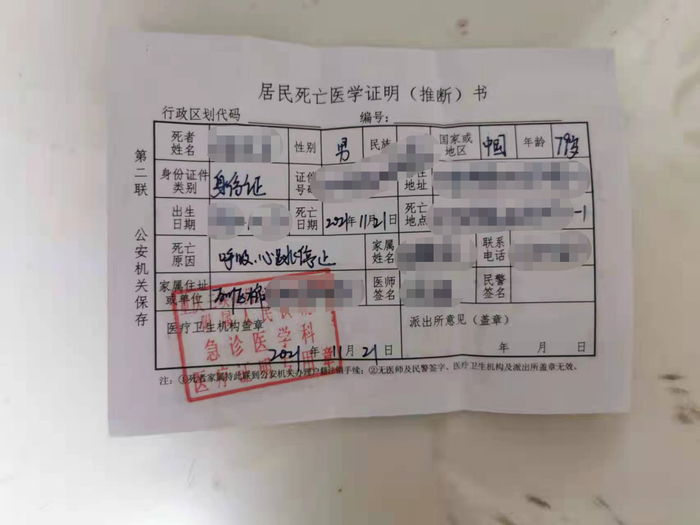 居民死亡医学证明（推断）书
行政区划代码 编号:
第二联 公安机关保存
死者姓名 性别 男 民族 国家或地区 中国 年龄 79岁
身份证件类别 身份证 证件号码 地址
出生日期 死亡日期 2021年11月21日 死亡地点 -1
死亡原因 呼吸、心跳停止 家属姓名 联系电话
家属住址或单位 医师签名 民警签名
医疗卫生机构盖章 派出所意见（盖章）
急诊医学科
2021年11月21日 年 月 日
注：①死者家属持此联到公安机关办理户籍注销手续；②无医师及民警签字、医疗卫生机构及派出所盖章无效。